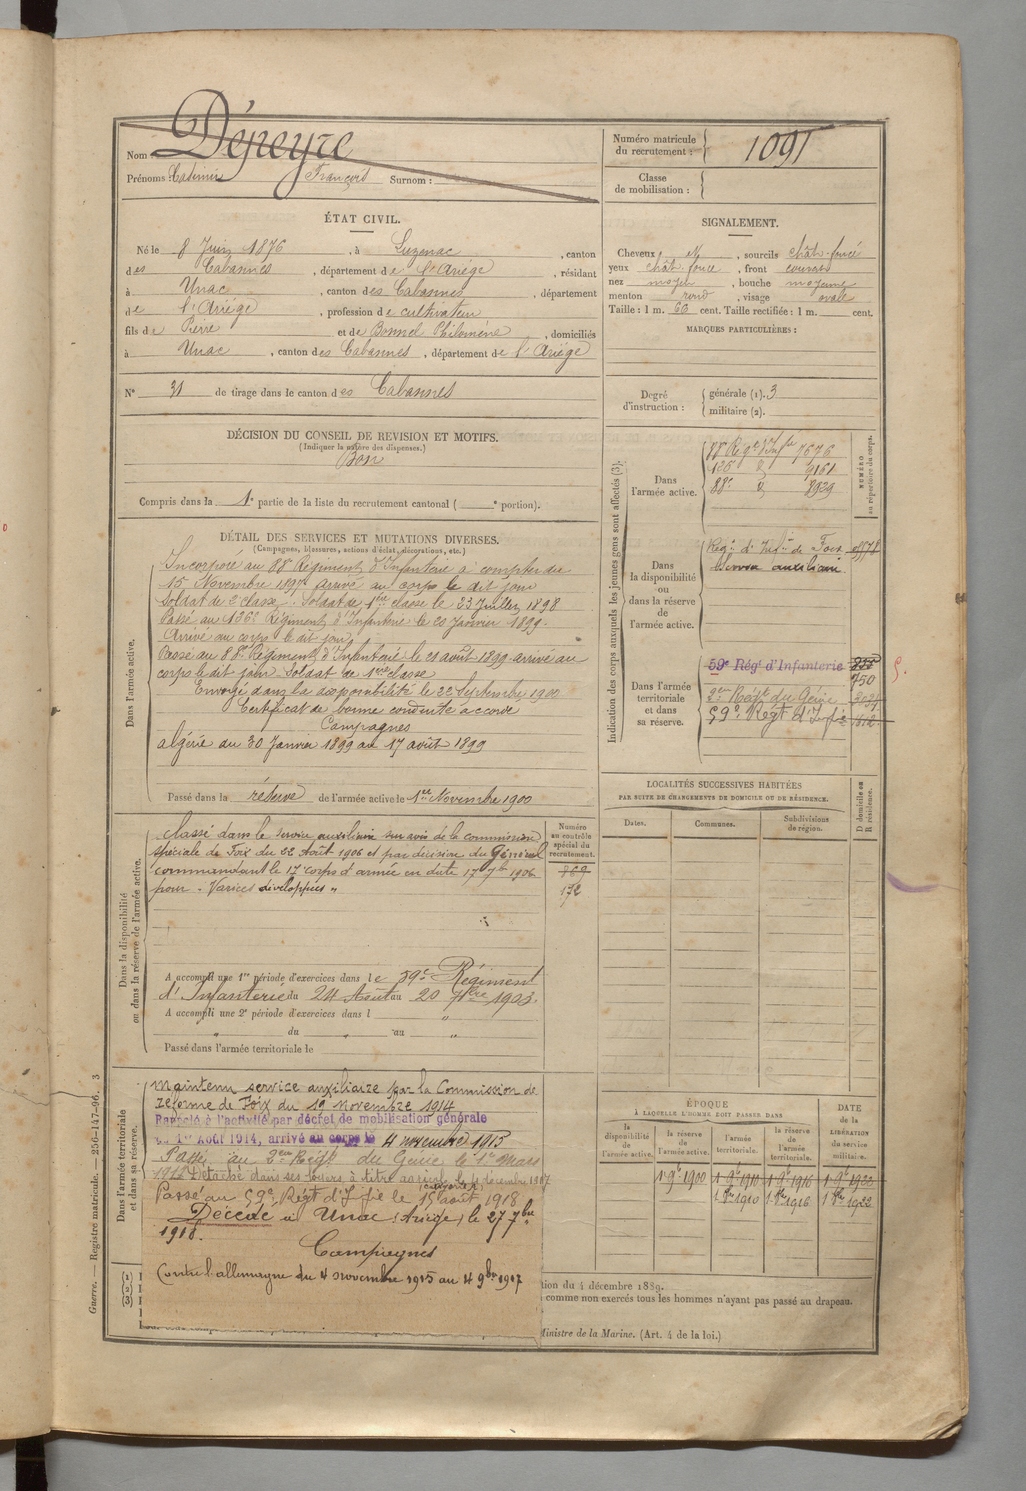 Nom Dépeyre
Prénoms : Casimir François Surnom :
Numéro matricule du recrutement : 1091
Classe de mobilisation :
ÉTAT CIVIL.
Né le 8 Juin 1876, à Luzenac, canton
des Cabannes, département de l'Ariège, résidant
à Unac, canton des Cabannes, département
de l'Ariège, profession de cultivateur
fils de Pierre et de Bonnel Philomène, domiciliés
à Unac, canton des Cabannes, département de l'Ariège
N° 31 de tirage dans le canton des Cabannes
SIGNALEMENT.
Cheveux N, sourcils chât. foncé
yeux chât. foncé, front couvert
nez moyen, bouche moyenne
menton rond, visage ovale
Taille : 1 m. 60 cent. Taille rectifiée : 1 m. cent.
MARQUES PARTICULIÈRES :
Degré d'instruction : générale (1). 3
militaire (2).
DÉCISION DU CONSEIL DE REVISION ET MOTIFS.
(Indiquer la nature des dispenses.)
Bon
Compris dans la 1e partie de la liste du recrutement cantonal ( e portion).
DÉTAIL DES SERVICES ET MUTATIONS DIVERSES.
(Campagnes, blessures, actions d'éclat, décorations, etc.)
Dans l'armée active.
Incorporé au 88e Régiment d'Infanterie à compter du
15 Novembre 1897 arrivé au corps le dit jour
Soldat de 2e classe. Soldat de 1ère classe le 23 Juillet 1898
Passé au Régiment d'Infanterie le 20 Janvier 1899.
Arrivé au corps le dit jour
Passé au 88e Régiment d'Infanterie le 21 août 1899 arrivé au
corps le dit jour Soldat de 1ère classe
Envoyé dans la disponibilité le 22 Septembre 1900
Certificat de bonne conduite accordé
Campagnes
Algérie du 30 Janvier 1899 au 17 août 1899
Passé dans la réserve de l'armée active le 1er Novembre 1900
Dans la disponibilité ou dans la réserve de l'armée active.
Classé dans le service auxiliaire sur avis de la commission
spéciale de Foix du 22 Août 1906 et par décision du Général
commandant le 17e corps d'armée en date 17 7bre 1906
pour « Varices développées »
Numéro au contrôle spécial du recrutement.
869
172
A accompli une 1re période d'exercices dans le 59e Régiment
d'Infanterie du 24 Août au 20 7bre 1903.
A accompli une 2e période d'exercices dans l "
" du " au "
Passé dans l'armée territoriale le
Dans l'armée territoriale et dans sa réserve.
Maintenu service auxiliaire par la Commission de
réforme de Foix du 19 Novembre 1914
Rappelé à l'activité par décret de mobilisation générale
du 1er Août 1914, arrivé au corps le 4 novembre 1915
Passé au 2eme Régt du Génie le 1er Mars
Passé au 59e Régt d'Inf le 15 août 1918
Décédé à Unac (Ariège) le 27 7bre
1918.
Campagnes
Contre l'allemagne du 4 novembre 1915 au 4 9bre 1917
Indication des corps auxquels les jeunes gens sont affectés (3).
NUMÉRO au répertoire du corps.
Dans l'armée active.
88e Régt d'Infie 7676
9161
88e d° 8929
Dans la disponibilité ou dans la réserve de l'armée active.
Régt d'Infie de Foix
Service auxiliaire
Dans l'armée territoriale et dans sa réserve.
59e Régt d'Infanterie
750
2eme Régt du Génie
59e Régt d'Infie
LOCALITÉS SUCCESSIVES HABITÉES
PAR SUITE DE CHANGEMENTS DE DOMICILE OU DE RÉSIDENCE.
Dates. Communes. Subdivisions de région. D domicile ou R résidence.
ÉPOQUE
À LAQUELLE L'HOMME DOIT PASSER DANS
la disponibilité de l'armée active. la réserve de l'armée active. l'armée territoriale. la réserve de l'armée territoriale.
DATE de la LIBÉRATION du service militaire.
1 9e 1900 1 9e 1910 1 9e 1916 1 9e 1922
1 8bre 1910 1 8bre 1916 1 8bre 1922
tion du 4 décembre 1889.
comme non exercés tous les hommes n'ayant pas passé au drapeau.
Ministre de la Marine. (Art. 4 de la loi.)
(1)
(2)
(3)
Guerre. — Registre matricule. — 256-147-96. 3